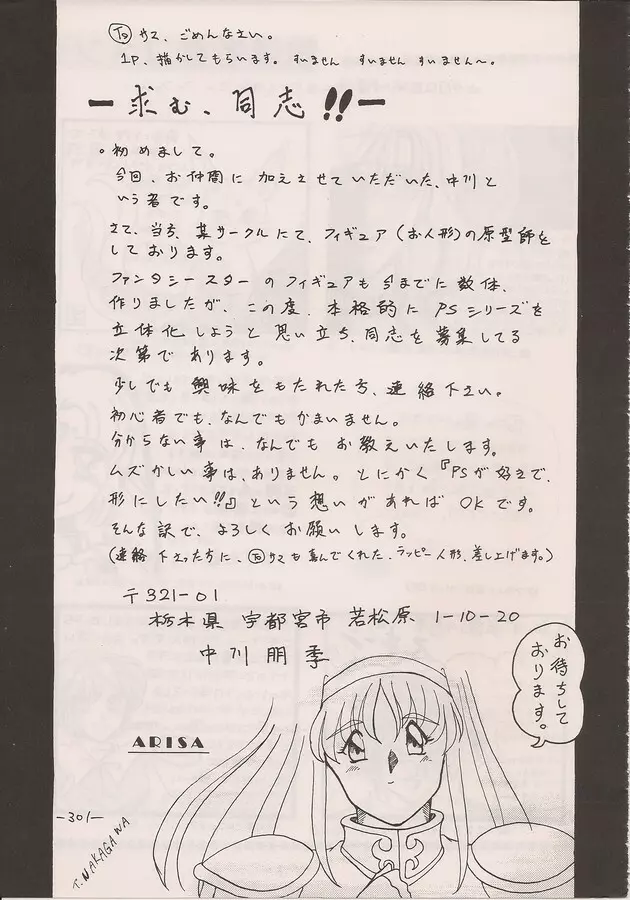 To サマ、ごめんなさい。
1P、描かしてもらいます。すいません すいません すいません〜。
ー求む、同志!!ー
。初めまして。
今回、お仲間に 加えさせていただいた、中川と
いう者です。
さて、当方、某サークルにて、フィギュア(お人形)の原型師を
しております。
ファンタシースターのフィギュアも今までに数体、
作りましたが、この度、本格的に PSシリーズを
立体化しようと思い立ち、同志を募集してる
次第であります。
少しでも興味をもたれた方、連絡下さい。
初心者でも、なんでもかまいません。
分からない事は、なんでもお教えいたします。
ムズかしい事は、ありません。とにかく『PSが好きで、
形にしたい!!』という想いがあれば OKです。
そんな訳で、よろしくお願いします。
(連絡下さった方に、To サマも喜んでくれた、ラッピー人形、差し上げます。)
〒321-01
栃木県 宇都宮市 若松原 1-10-20
中川 朋季
お待ちして
おります。
ARISA
-301-
T.NAKAGAWA